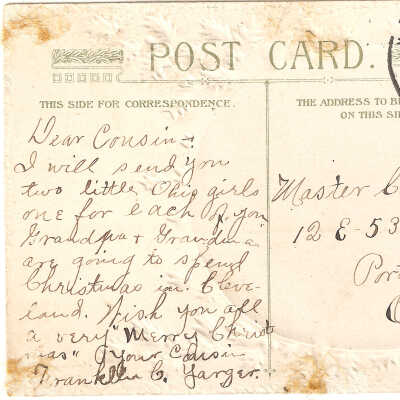 POST CARD.
THIS SIDE FOR CORRESPONDENCE.
Dear Cousin:-
I will send you
two little Ohio girls
one for each of you
Grandpa + Grandma
are going to spend
Christmas in Cleve-
land. Wish you all
a very "Merry Christ
mas" Your Cousin
Franklin C. Yarger.
THE ADDRESS TO B
ON THIS SI
Master C
12 E-53
Por